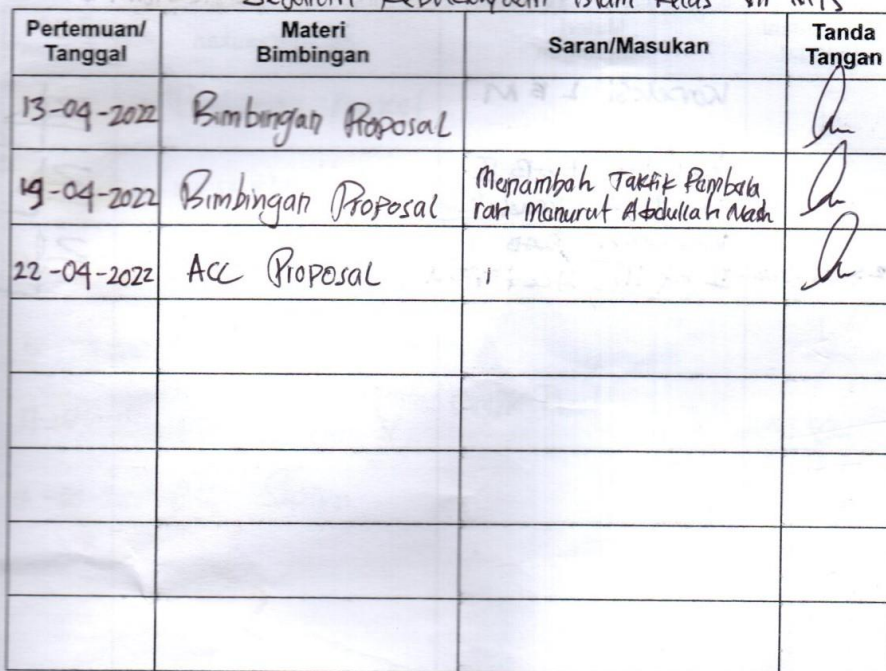 Sejarah Kebudayaan Islam Kelas VII MTs
Pertemuan/
Tanggal
Materi
Bimbingan
Saran/Masukan
Tanda
Tangan
13-04-2022 Bimbingan Proposal
19-04-2022 Bimbingan Proposal Menambah Taktik Pambala
ran Manurut Abdullah Nash
22-04-2022 Acc Proposal